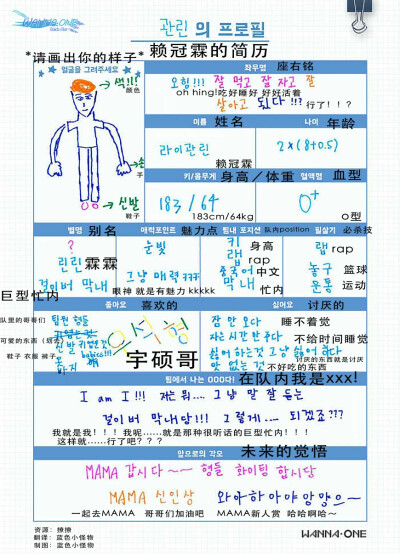 WANNA·ONE
관린 의 프로필
*请画出你的样子*
赖冠霖的简历
얼굴을 그려주세요
색!!!
颜色
손
手
신발
鞋子
좌우명 座右铭
오힝!!! 잘 먹고 잘 자고 잘
oh hing!吃好睡好 好好活着
살아고 된다 !!? 行了!!?
이름 姓名
나이 年龄
라이관린
赖冠霖
2×(8+0.5)
키/몸무게 身高/体重
혈액형 血型
183/64
183cm/64kg
O+
O型
별명 别名
매력포인트 魅力点
팀내 포지션 队内position
필살기 必杀技
?
린린 霖霖
걸이버 막내
巨型忙内
눈빛
그냥 매력 ㅋㅋㅋ
眼神 就是有魅力 kkkkk
키 身高
랩 rap
중국어 中文
막내 忙内
랩 rap
농구 篮球
운동 运动
좋아요 喜欢的
싫어요 讨厌的
队里的哥哥们
팀원 형들
可爱的东西
鞋子 衣服 裤子
신발
옷
바지
우석형
宇硕哥
잠 안 오다 睡不着觉
자는 시간 안 주다 不给时间睡觉
싫어 하는것 그냥 싫어 하다
讨厌的东西就是讨厌
맛 없는 것 不好吃的东西
팀에서 나는 OOO다! 在队内我是xxx!
I am I !!! 저는 뭐.... 그냥 말 잘 듣는
걸이버 막내당!!! 그렇게.... 되겠죠???
我就是我!!! 我呢......就是那种很听话的巨型忙内!!!
这样就......行了吧???
앞으로의 각오 未来的觉悟
MAMA 갑시다~~ 형들 화이팅 합시당
MAMA 신인상 와아하아야앙앙으~
一起去MAMA 哥哥们加油吧 MAMA新人赏 哈哈啊哈~
资源:撩撩
翻译:蓝色小怪物
制图:蓝色小怪物
WANNA·ONE